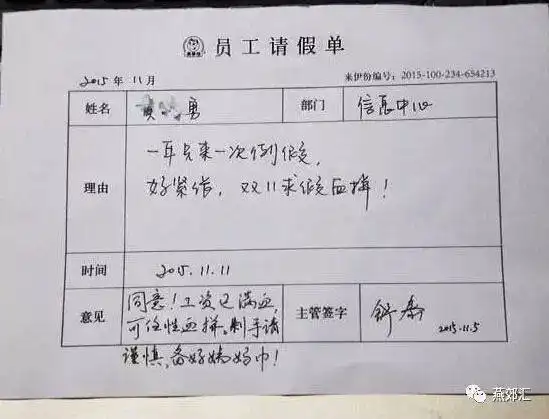 员工请假单
2015 年 11 月 来伊份编号：2015-100-234-654213
姓名 勇 部门 信息中心
理由
一年只来一次例假，
好紧俏，双11求假血拼！
时间 2015.11.11
意见
同意！工资已满血，
可任性血拼。剁手请
谨慎，备好姨妈巾！
主管签字
2015.11.5
燕郊汇